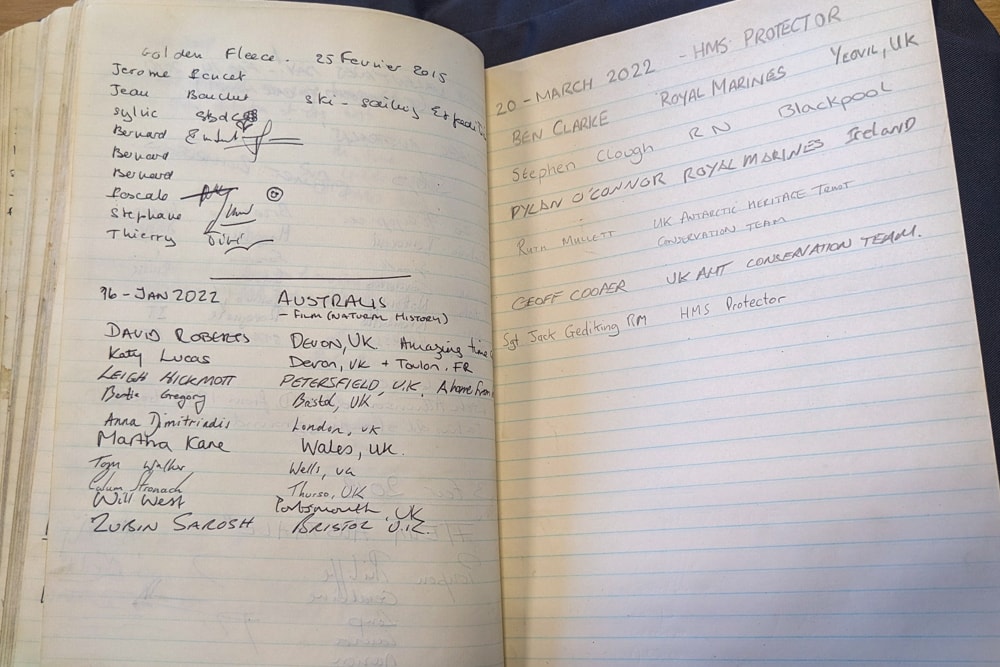 Golden Fleece. 25 Fevrier 2015
Jerome Poncet
Jean Bouchet ski-sailing Expediti
Sylvie
Bernard
Bernard
Bernard
Pascale
Stephane
Thierry
16-JAN 2022 AUSTRALIS
- FILM (NATURAL HISTORY)
DAVID ROBERTS DEVON, UK. Amazing time
Katy Lucas Devon, UK + Toulon, FR
LEIGH HICKMOTT PETERSFIELD, U.K. A home from
Bertie Gregory Bristol, UK
Anna Dimitriadis London, UK
Martha Kane Wales, UK.
Tom Walker Wells, UK
Calum Stronach Thurso, UK
Will West Portsmouth, UK
ZUBIN SAROSH BRISTOL U.K.
20-MARCH 2022 - HMS PROTECTOR
BEN CLARKE ROYAL MARINES YEOVIL, UK
Stephen Clough RN Blackpool
DYLAN O'CONNOR ROYAL MARINES Ireland
RUTH MULLETT UK ANTARCTIC HERITAGE TRUST
CONSERVATION TEAM
GEOFF COOPER UK AHT CONSERVATION TEAM.
Sgt Jack Gedikïng RM HMS Protector